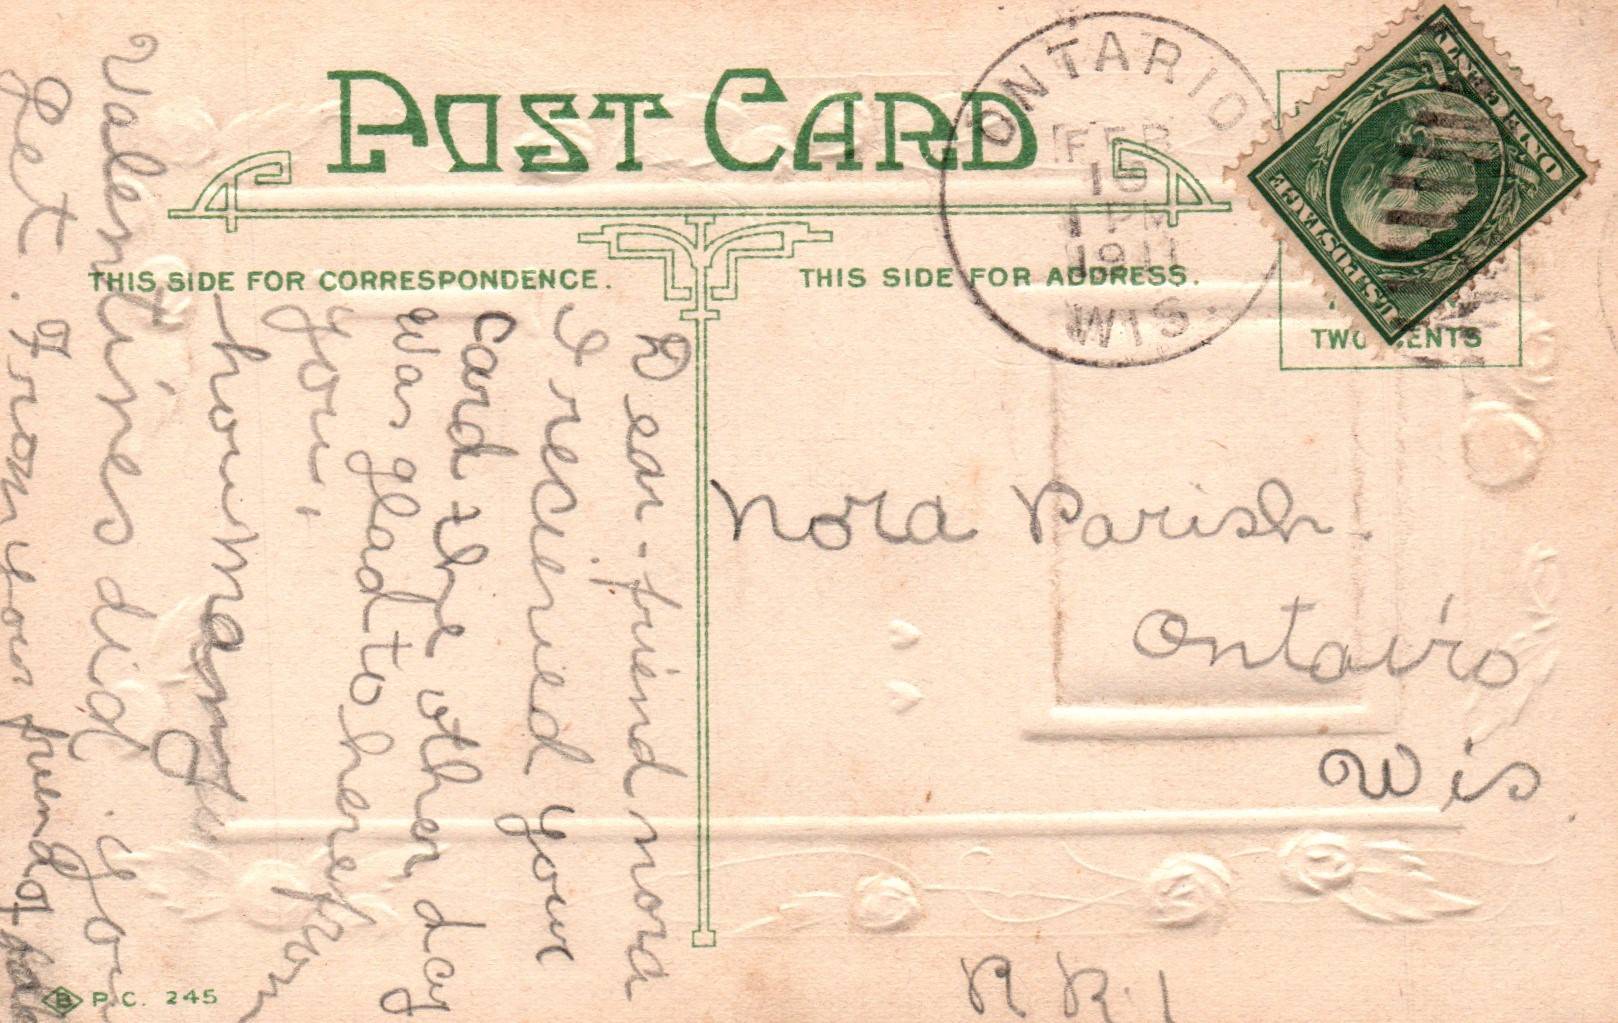 POST CARD
THIS SIDE FOR CORRESPONDENCE.
THIS SIDE FOR ADDRESS.
ONTARIO
FEB
1 PM
1911
WIS.
ONE CENT
U.S. POSTAGE
TWO CENTS
Dear-friend nora
I recieried your
card the other day
was glad to here from
you,
how many
Valentines did you
get. From your friend
Nora Parish.
Ontario
Wis
R R. 1
B P.C. 245